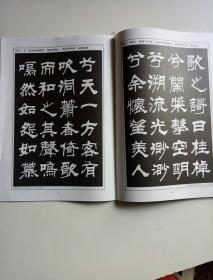 歌之謌曰桂棹
兮蘭槳擊空明
兮溯流光渺渺
兮余懷望美人
兮天一方客有
吹洞簫者倚歌
而和之其聲嗚
嗚然如怨如慕